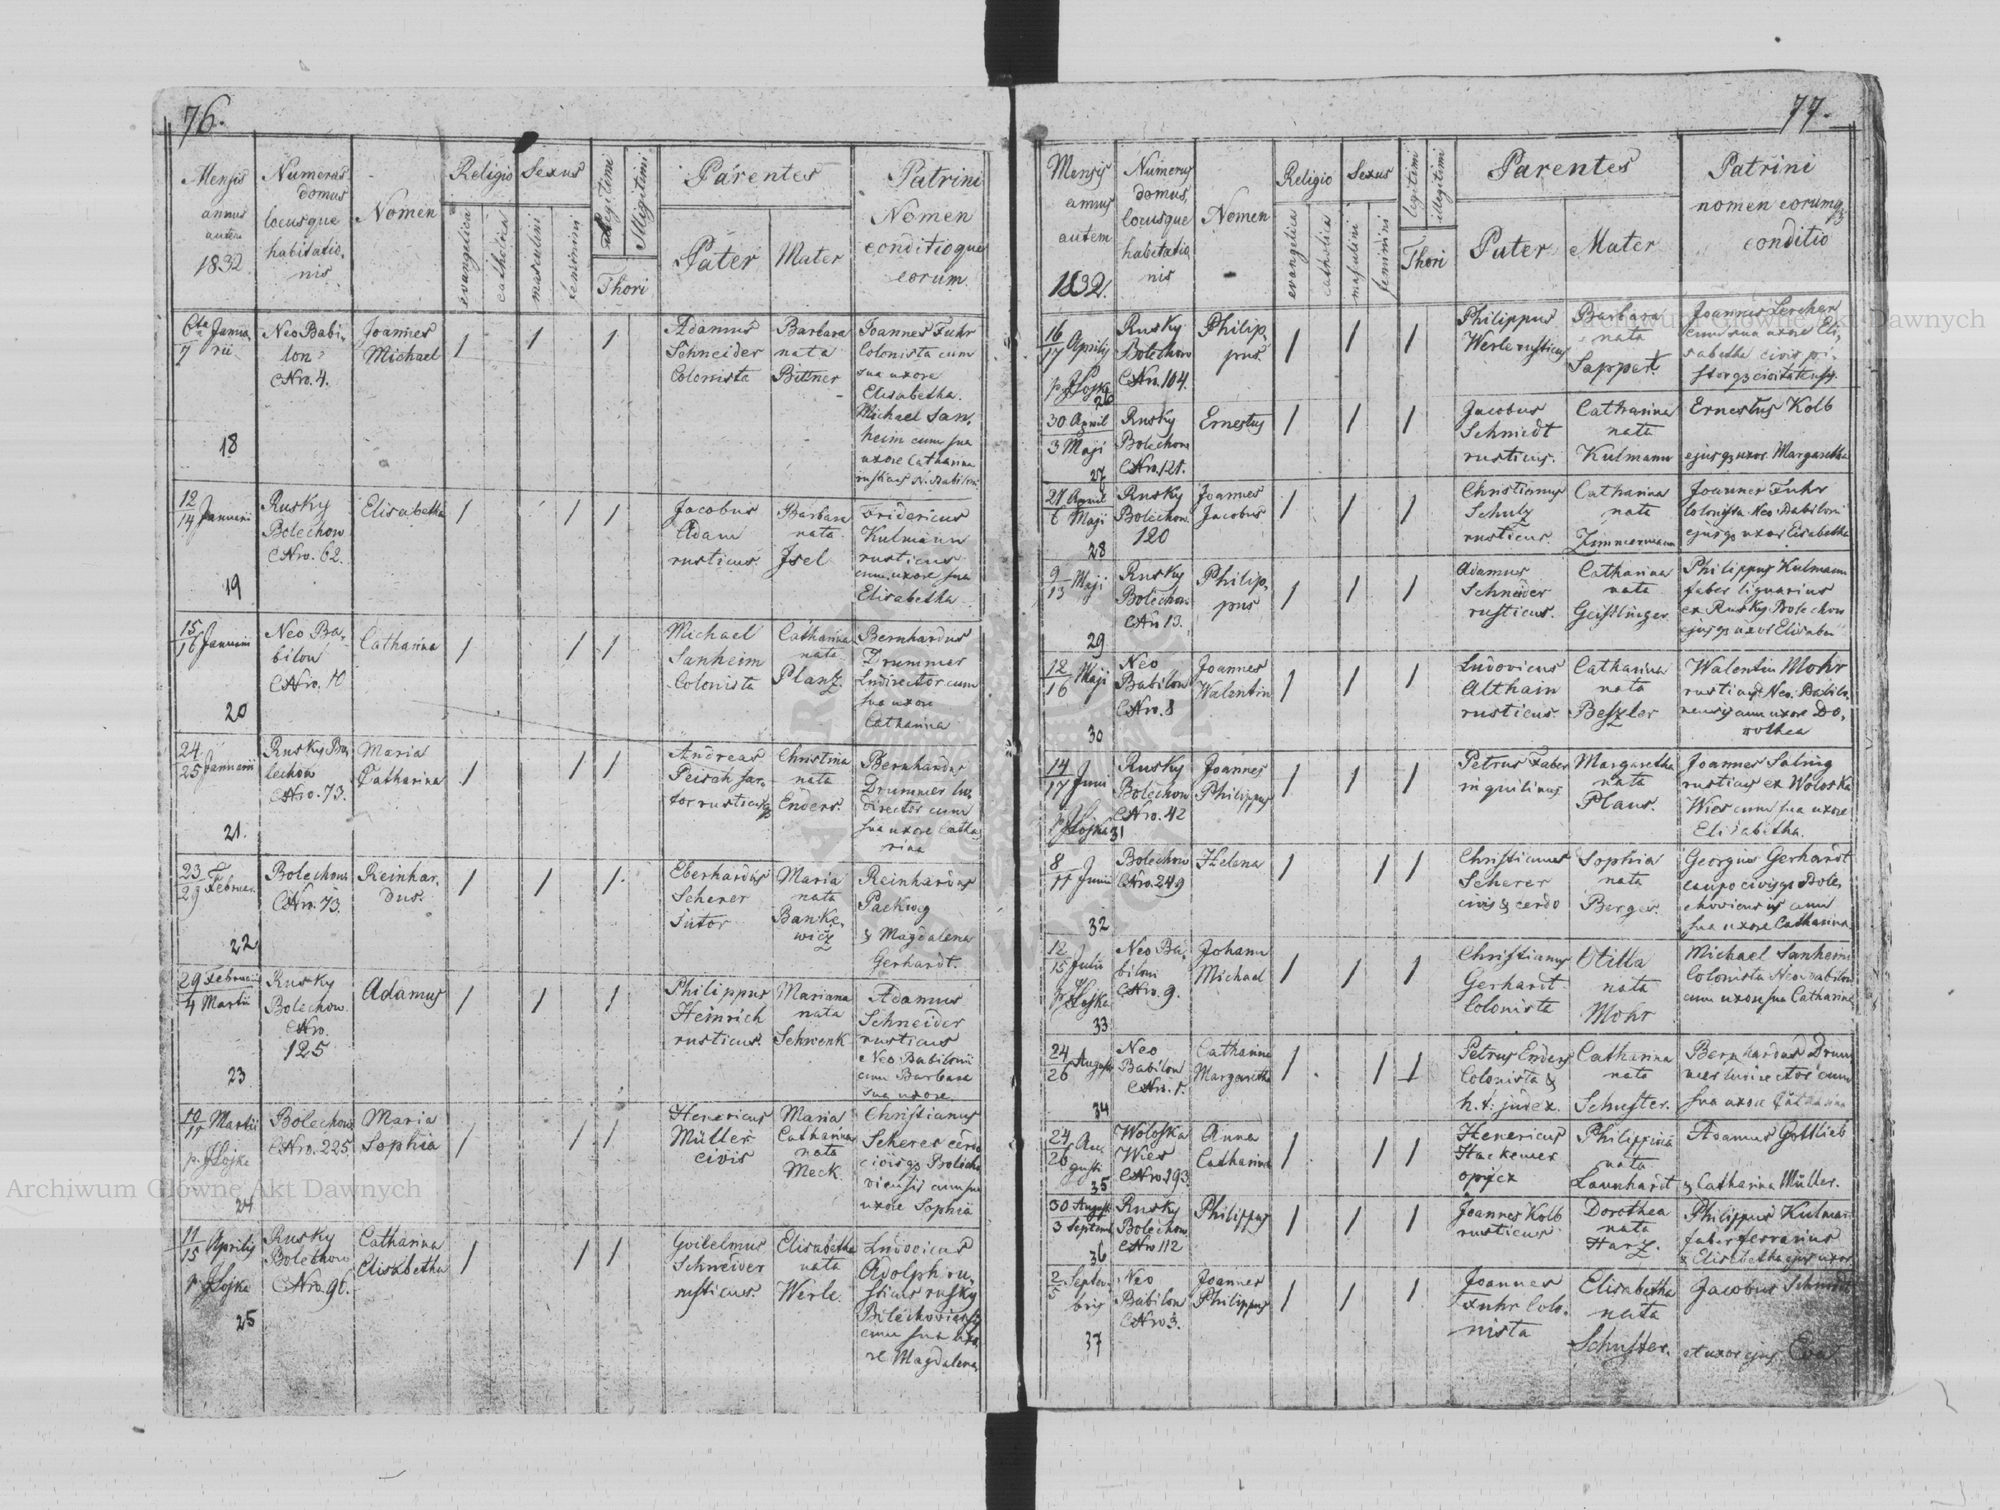 76.
Mensis
annus
autem
1832.
Numerus
domus
locusque
habitatio
nis
Nomen
Religio
evangelica
catholica
Sexus
masculini
feminini
Legitimi
Illegitimi
Thori
Parentes
Pater
Mater
Patrini
Nomen
conditioque
eorum.
6ta Janua
7 rii
Neo Babi-
lon
CNro. 4.
Joannes
Michael
Adamus
Schneider
Colonista
Barbara
nata
Bittner
Joannes Fuhr
Colonista cum
sua uxore
Elisabetha.
Michael San-
heim cum sua
uxore Catharina
rusticus N. Babilon.
18
12
14 Januarii
Rusky
Bolechow
CNro. 62.
Elisabetha
Jacobus
Adam
rusticus.
Barbara
nata
Isel
Fridericus
Kulmann
rusticus
cum uxore sua
Elisabetha
19
15
16 Januarii
Neo Ba-
bilon
CNro. 10
Catharina
Michael
Sanheim
Colonista
Catharina
nata
Planz.
Bernhardus
Drummer
Ludirector cum
sua uxore
Catharina
20
24
25 Januarii
Rusky Bo-
lechow
CNro. 73.
Maria
Catharina
Andreas
Peisch sar-
tor rusticusq
Christina
nata
Enders.
Bernhardus
Drummer lu-
director cum
sua uxore Catha
rina
21.
23
29 Februar.
Bolechow
CNro. 73.
Reinhar-
dus.
Eberhardus
Scherer
Sutor
Maria
nata
Banke-
wicz
Reinhardus
Packweg
& Magdalena
Gerhardt.
22
29 Februarii
4 Martii
Rusky
Bolechow
CNro.
125
Adamus
Philippus
Heinrich
rusticus.
Mariana
nata
Schwenk
Adamus
Schneider
rusticus
Neo Babilonii
cum Barbara
sua uxore.
23
10
11 Martii
p. Hojka
Bolechow
CNro. 225
Maria
Sophia
Henricus
Müller
civis
Maria
Catharina
nata
Meck.
Christianus
Scherer cerdo
civisq Bolecho
viensis cum sua
uxore Sophia
24
11
15 Aprilis
p Hojka
Rusky
Bolechow
CNro. 96.
Catharina
Elisabetha
Guilelmus
Schneider
rusticus.
Elisabetha
nata
Werle.
Ludovicus
Adolph ru-
sticus rusky
Bolechoviensis
cum sua uxo
re Magdalena
25
77.
Mensis
annus
autem
1832.
Numerus
domus,
locusque
habitatio
nis
Nomen
Religio
evangelica
catholica
Sexus
masculini
feminini
legitimi
illegitimi
Thori
Parentes
Pater
Mater
Patrini
nomen eorumq
conditio
16
17 Aprilis
p. Hojka
26
Rusky
Bolechow
CNro. 104.
Philip-
pus
Philippus
Werle rusticus
Barbara
nata
Sappert.
Joannes Lercher
cum sua uxore Eli-
sabetha civis pi-
storq civitatensis.
30 April
3 Maji
27
Rusky
Bolechow
CNro. 121.
Ernestus
Jacobus
Schmidt
rusticus.
Catharina
nata
Kulmann
Ernestus Kolb
ejusq uxor. Margaretha
27 April
6 Maji
28
Rusky
Bolechow
120
Joannes
Jacobus
Christianus
Schulz
rusticus.
Catharina
nata
Zimmermann
Joannes Fuhr
Colonista Neo Babiloni
ejusq uxor Elisabetha
9
13 Maji
29
Rusky
Bolechow
CNr 13.
Philip-
pus
Adamus
Schneider
rusticus.
Catharina
nata
Geistlinger
Philippus Kulmann
faber lignarius
ex Rusky Bolechow
ejusq uxor Elisabet
12
16 Maji
30
Neo
Babilon
CNro. 8
Joannes
Valentin
Ludovicus
Althain
rusticus.
Catharina
nata
Beszler
Walentin Mohr
rusticus Neo Babilo-
nensis cum uxore Do-
rothea
14
17 Juni
p Hojka 31
Rusky
Bolechow
CNro. 42
Joannes
Philippus
Petrus Faber
inquilinus
Margaretha
nata
Plaus.
Joannes Saling
rusticus ex Woloska
Wies cum sua uxore
Elisabetha.
8
11 Junii
32
Bolechow
CNro. 249
Helena
Christianus
Scherer
civis & cerdo
Sophia
nata
Berger.
Georgius Gerhardt
caupo civisq Bole-
choviensis cum
sua uxore Catharina
12
15 Julii
p Hojka
33
Neo Ba-
biloni
CNro. 9.
Johann
Michael
Christianus
Gerhardt
Colonista
Otilla
nata
Mohr
Michael Sanheim
Colonista Neo Babiloni
cum uxore sua Catharina
24
26 August
34
Neo
Babilon
CNro. 1.
Catharina
Margaretha
Petrus Enders
Colonista &
h. t. judex.
Catharina
nata
Schuster.
Bernhardus Drum
mer ludirector cum
sua uxore Catharina
24 Au
26 gusti
35
Woloska
Wies
CNro. 293
Anna
Catharina
Henricus
Hackemer
opifex
Philippina
nata
Launhardt
Adamus Gottlieb
& Catharina Müller.
30 August
3 Septemb
36
Rusky
Bolechow
CNro 112
Philippus
Joannes Kolb
rusticus
Dorothea
nata
Harz.
Philippus Kulmann
faber ferrarius
& Elisabetha ejus uxor
2 Septem
5 bris
37
Neo
Babilon
CNro 3.
Joannes
Philippus
Joannes
Fuhr Colo-
nista
Elisabetha
nata
Schuster.
Jacobus Schmidt
et uxor ejus Eva
Archiwum Główne Akt Dawnych
Archiwum Główne Akt Dawnych